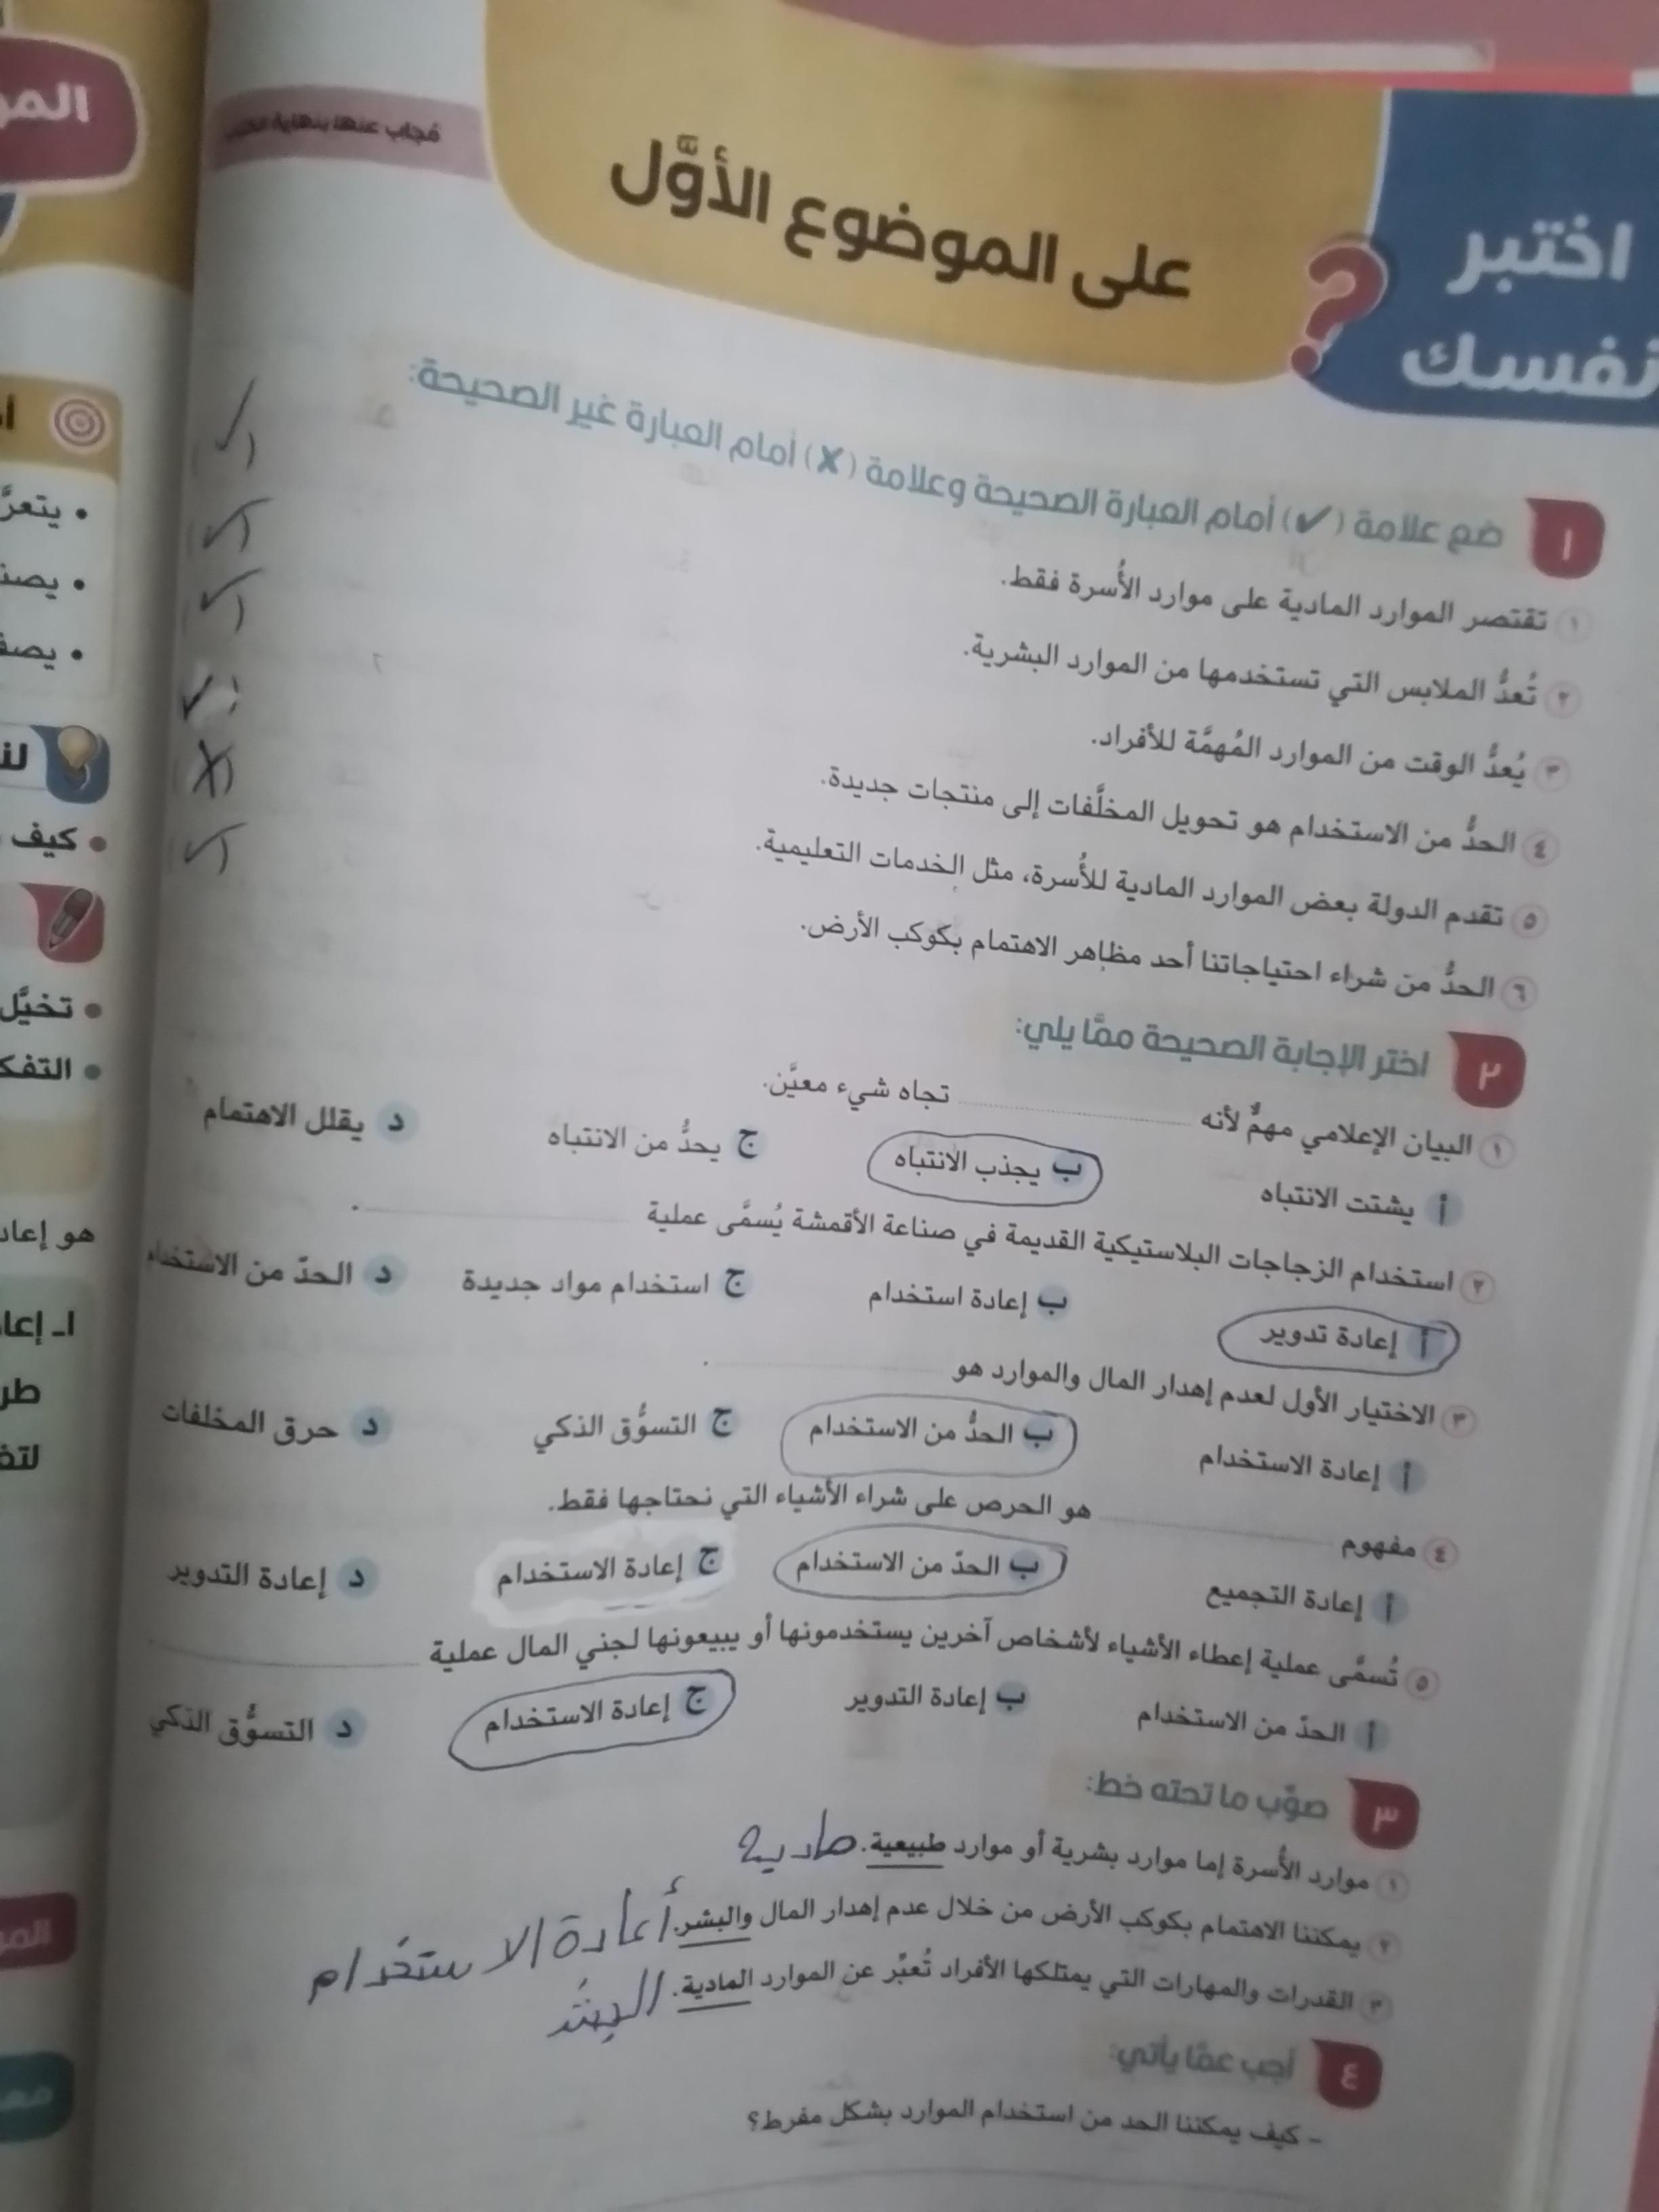 اختبر
نفسك
؟
على الموضوع الأوَّل
مُجاب عنها بنهاية
١ ضع علامة (✓) أمام العبارة الصحيحة وعلامة (✗) أمام العبارة غير الصحيحة:
١ تقتصر الموارد المادية على موارد الأُسرة فقط. (✓)
٢ تُعدُّ الملابس التي تستخدمها من الموارد البشرية. (✓)
٣ يُعدُّ الوقت من الموارد المُهمَّة للأفراد. (✓)
٤ الحدُّ من الاستخدام هو تحويل المخلَّفات إلى منتجات جديدة. ✓
٥ تقدم الدولة بعض الموارد المادية للأُسرة، مثل الخدمات التعليمية. (X)
٦ الحدُّ من شراء احتياجاتنا أحد مظاهر الاهتمام بكوكب الأرض. (✓)
٢ اختر الإجابة الصحيحة ممَّا يلي:
١ البيان الإعلامي مهمٌّ لأنه ........ تجاه شيء معيَّن.
أ يشتت الانتباه ب يجذب الانتباه ج يحدُّ من الانتباه د يقلل الاهتمام
٢ استخدام الزجاجات البلاستيكية القديمة في صناعة الأقمشة يُسمَّى عملية ........ .
أ إعادة تدوير ب إعادة استخدام ج استخدام مواد جديدة د الحدّ من الاستخدام
٣ الاختيار الأول لعدم إهدار المال والموارد هو ........ .
أ إعادة الاستخدام ب الحدُّ من الاستخدام ج التسوُّق الذكي د حرق المخلفات
٤ مفهوم ........ هو الحرص على شراء الأشياء التي نحتاجها فقط.
أ إعادة التجميع ب الحدّ من الاستخدام ج إعادة الاستخدام د إعادة التدوير
٥ تُسمَّى عملية إعطاء الأشياء لأشخاص آخرين يستخدمونها أو يبيعونها لجني المال عملية ........
أ الحدّ من الاستخدام ب إعادة التدوير ج إعادة الاستخدام د التسوُّق الذكي
٣ صوِّب ما تحته خط:
١ موارد الأُسرة إما موارد بشرية أو موارد طبيعية. مادية
٢ يمكننا الاهتمام بكوكب الأرض من خلال عدم إهدار المال والبشر. أعادة الاستخدام
٣ القدرات والمهارات التي يمتلكها الأفراد تُعبِّر عن الموارد المادية.
٤ أجب عمَّا يأتي:
- كيف يمكننا الحد من استخدام الموارد بشكل مفرط؟
المو
• يتعرَّ
• يصف
• كيف
• تخيَّل
• التفك
هو إعاد
١ـ إعا
طر
المو